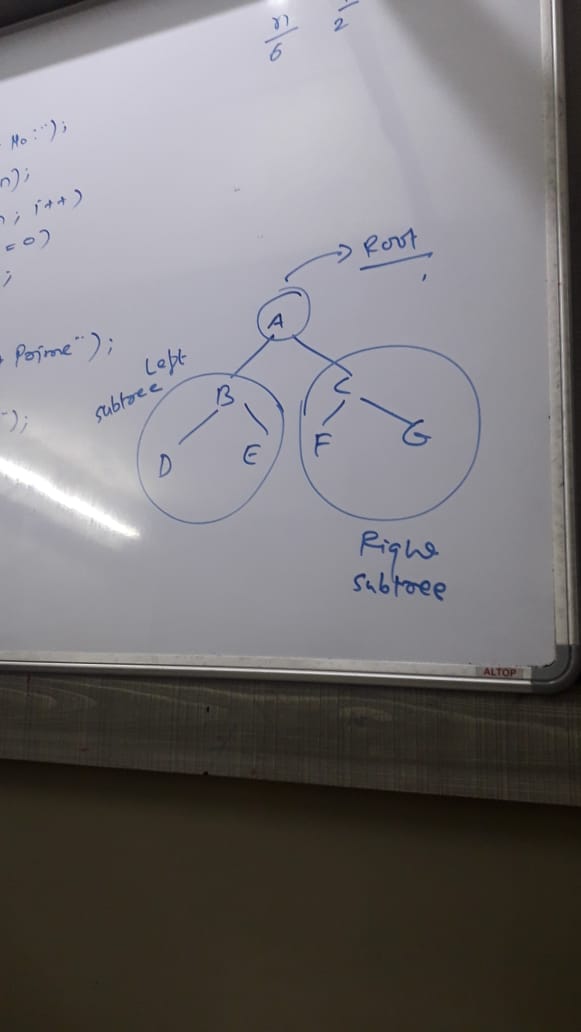 n/6 1/2
No:");
n);
n; i++)
= 0)
;
Prime");
");
Root
A
Left
subtree
B
C
D
E
F
G
Right
subtree
ALTOP